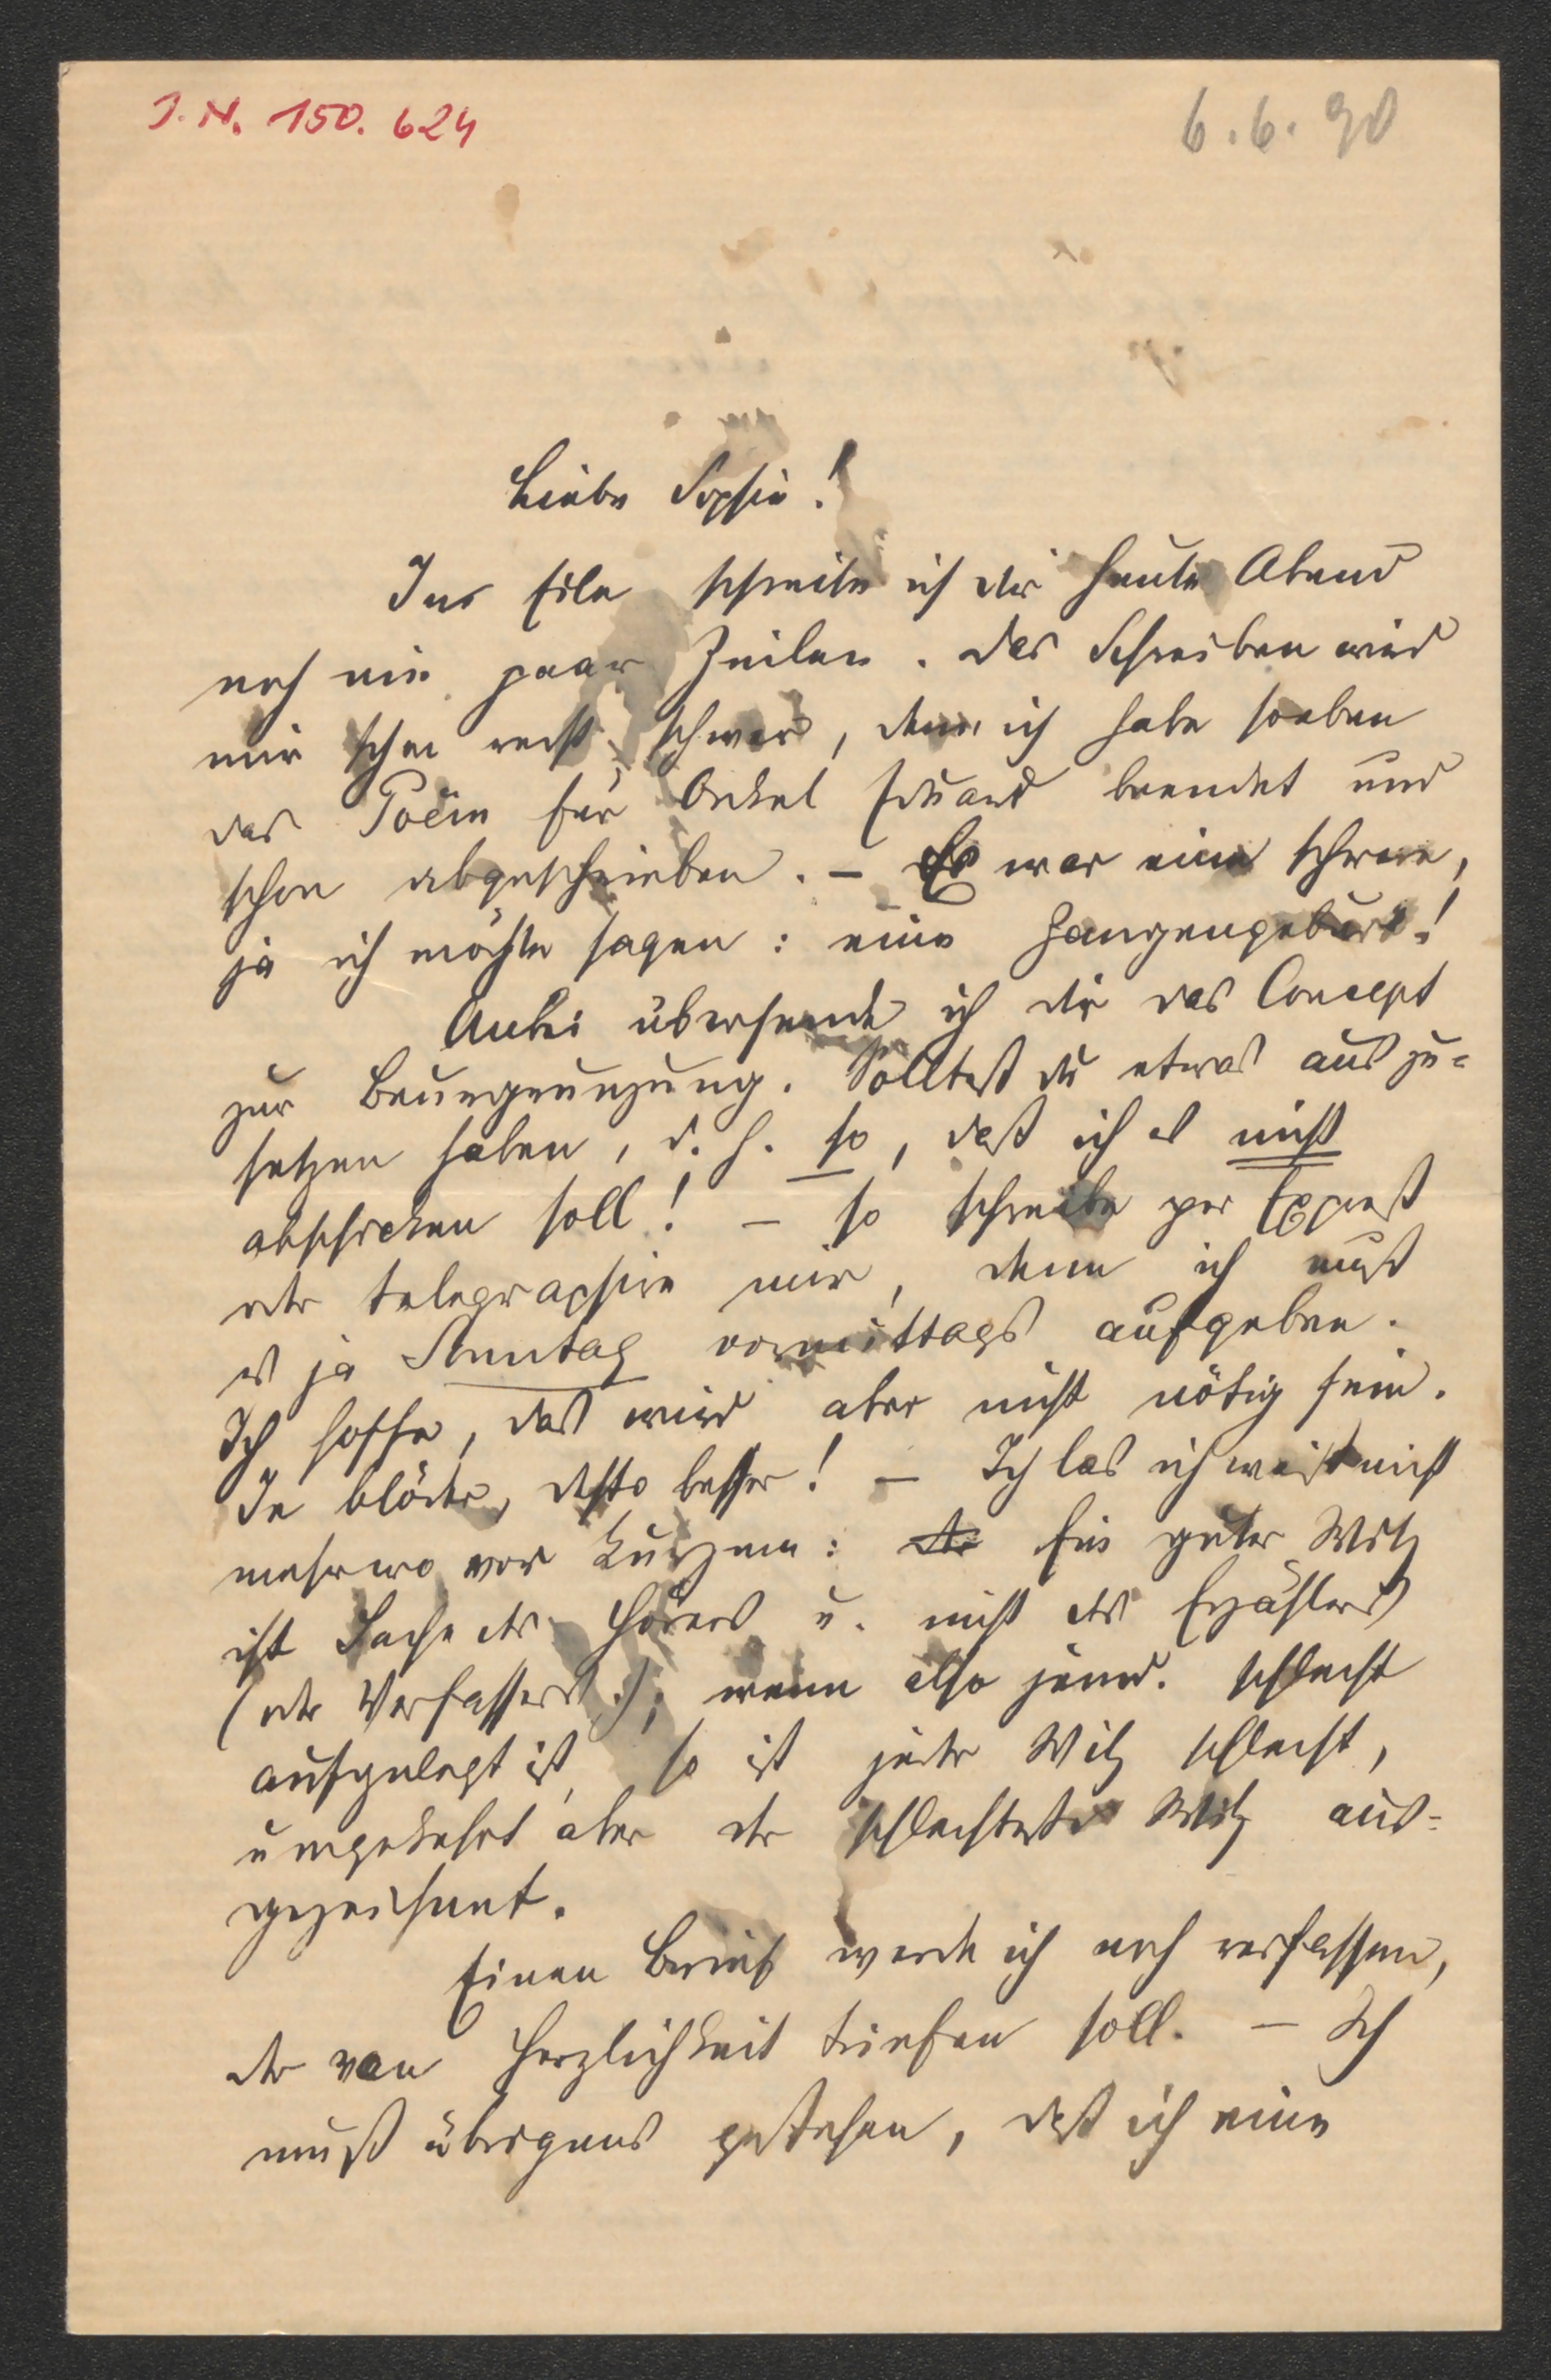 J. N. 150.624
6.6.90
Liebe Sophie!
In Eile schreibe ich dir heute Abend
noch ein paar Zeilen. Das Schreiben wird
mir schon recht schwer, denn ich habe soeben
das Poëm für Onkel Eduard beendet und
schon abgeschrieben. – Es war eine schwere,
ja ich möchte sagen: eine Zangengeburt!
Anbei übersende ich dir das Concept
zur Beurgrunzung. Solltest du etwas auszu-
setzen haben, d. h. so, daß ich es nicht
abschicken soll! – so schreibe per Expreß
oder telegraphire mir, denn ich muß
es ja Sonntag vormittags aufgeben.
Ich hoffe, das wird aber nicht nötig sein.
Je blöder, desto besser! – Ich las ich weiß nicht
mehr wo vor Kurzem: Ein guter Witz
ist Sache des Hörers u. nicht des Erzählers
(oder Verfassers); wenn also jemd. schlecht
aufgelegt ist, so ist jeder Witz schlecht,
umgekehrt aber der schlechteste Witz aus-
gezeichnet.
Einen Brief werde ich noch verfassen,
der von Herzlichkeit triefen soll. – Ich
muß übrigens gestehen, daß ich eine